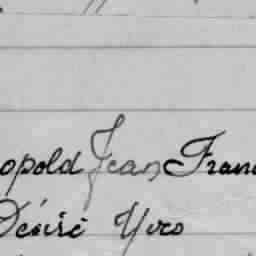 opold Jean Fran
Désiré Yves